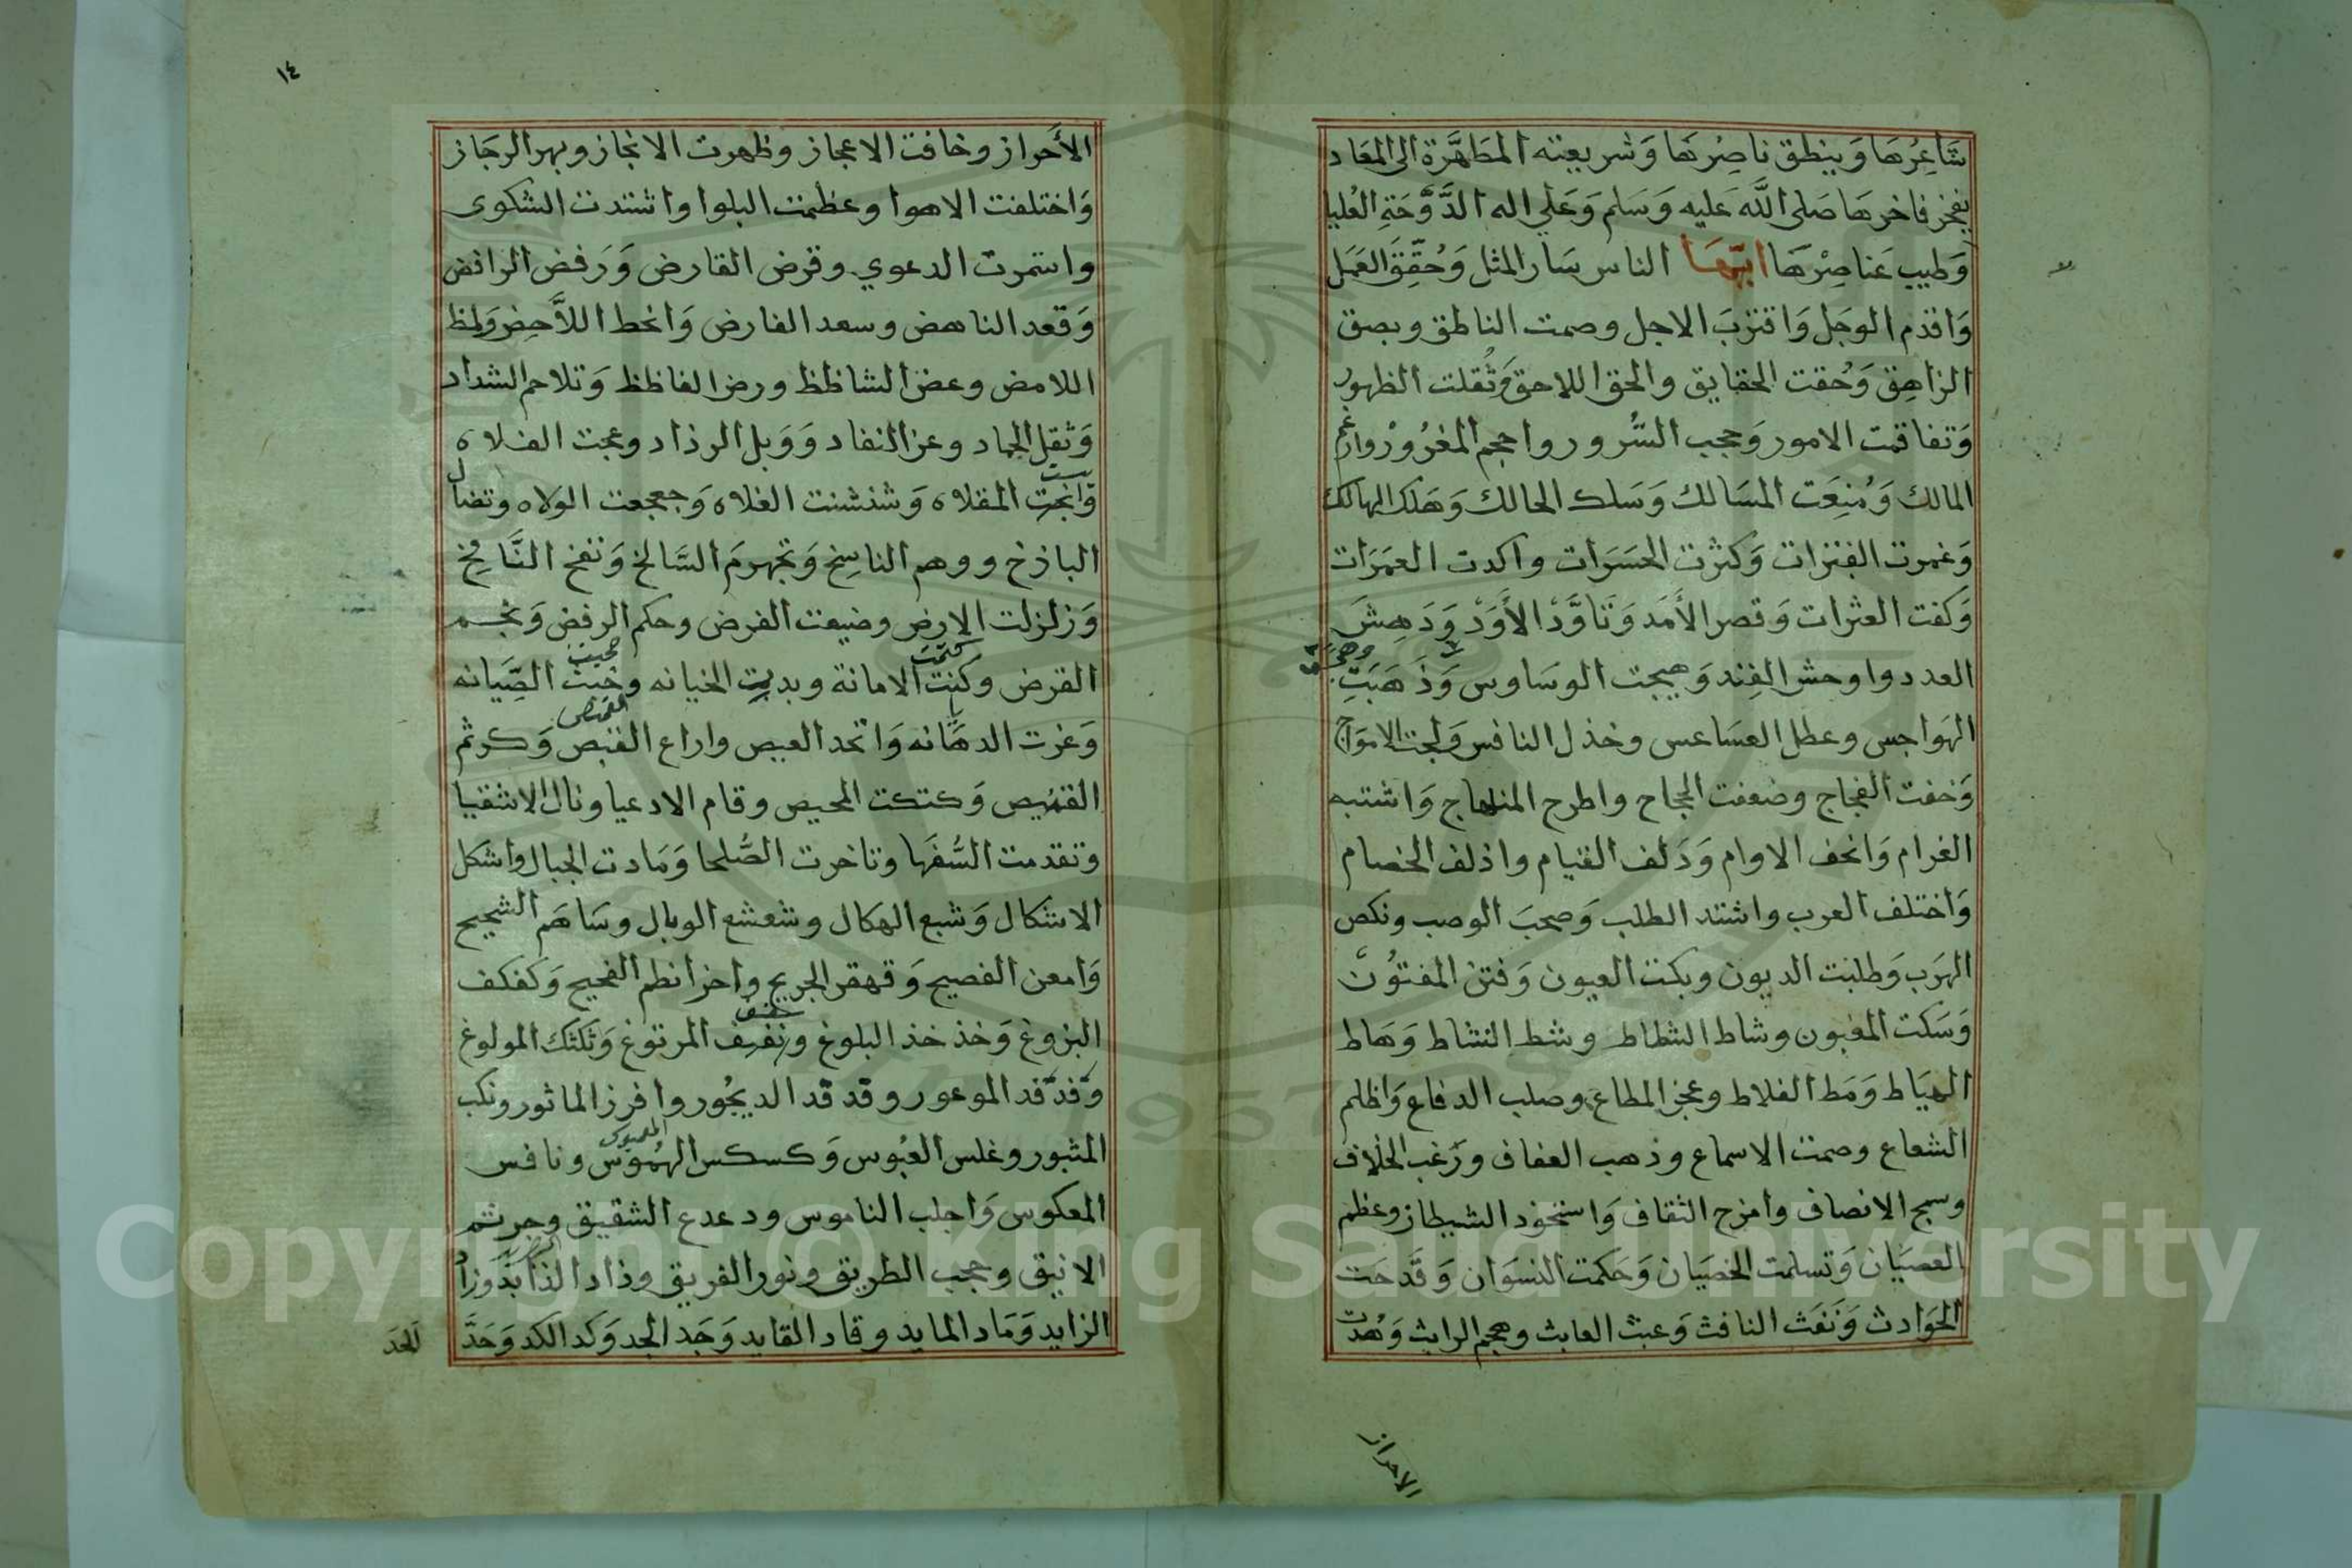 شَاعِرُهَا وَينطق ناصِرُهَا وَشريعته المطَهَّرة الى المعَاد
بفخر فاخرهَا صَلى اللَّه عَليه وَسَلم وَعَلى اله الدَّوْحَةِ العُليا
وَطيب عَناصِرْهَا ايّهَا الناس سَار المثل وَحُقّقَ العَمَل
وَاقدم الوجَل وَاقتربَ الاجل وصمت الناطق وبصق
الزاهِق وَحُقت الحقايق والحق اللاحق وَثُقلت الظهور
وَتفاقمت الامور وَحجب السُّرور واحجم المغرُورْ وارغم
المالك وَمُنِعَت المسَالك وَسَلك الحالك وَهَلك الهالك
وَغمرت الفترات وَكثرت الحسَرَات واكدت العمَرَات
وَكفت العثرات وَقصر الأَمَد وَتَاوَّدْ الأَوَدْ وَدَهِشَ
العدد واوحش الفِند وَهيجت الوسَاوس وَذَهَبَتِ
الهَواجس وعطل العسَاعس وخذل النافس وَلجت الامَوَاج
وَخفت الفجاج وضعفت الحجاج واطرح المنهاج وَاشتبه
الغرام وَانحف الاوام وَدَلف القيام واذلف الخصام
وَاختلف العرب واشتد الطلب وَصحبَ الوصب ونكص
الهَرَب وَطلبت الديون وبكت العيون وَفتن المفتوُن
وَسَكت المغبون وشاط الشطاط وشط النشاط وَهَاط
الهيَاط وَمَط الفلاط وعجز المطاع وصلب الدفاع وَاظلم
الشعاع وصمت الاسماع وذهب العفاف وَرَغب الخلاف
وسمج الانصاف وامزح الثقاف وَاستحوذ الشيطان وعظم
العصيَان وَتسلمت الخصيَان وَحَكمت النسوَان وَقَدحَت
الحَوَادث وَنَفَث النافث وَعبث العابث وهجم الرابث وَهُدت
الاحراز
١٤
الأَحراز وخافت الاعجاز وظهرت الانجاز وبهر الرجَاز
وَاختلفت الاهوا وعظمت البلوا واشتدت الشكوى
واستمرت الدعوي وقرض القارض وَرَفض الرافض
وَقعد الناهض وسعد الفارض وَانحط اللَّاحِض وَلمظ
اللامض وعض الشاظظ ورض الفاظظ وَتلاحم الشداد
وَثقل الجماد وعز النفاد وَوَبل الرذاد وعجت الفلاه
وَانجت المقلاه وَشنشنت الغلاه وَجعجعت الولاه وتضال
الباذخ ووهم الناسِخ وَتجهرمَ السَّالخ وَنفخ النَّافخ
وَزلزلت الارض وضيعت الفرض وحكم الرفض وَنجم
القرض وكتمت الامانة وبدت الخيانه وخبثت الصِّيَانه
وَعزت الدهَانه وَاتحد العيص واراع القنيص وَكرثم
القميص وَكتكت المحيص وقام الادعيا ونال الاشقيا
وتقدمت السُّفَهَا وتاخرت الصُّلحا وَمَادت الجبال واشكل
الاشكال وَشبع الهكال وشعشع الوبال وسَاهَم الشحيح
وَامعن الفصيح وَقهقر الجريح واخرانطم الفحيح وَكفكف
البزوغ وَخذخذ البلوغ ونفنف المرتوغ وَتَكتَك المولوغ
وفدفد الموعور وقدقد الديجُور وافرز الماثور ونكب
المثبور وغلس العبُوس وَكسكس الهمُوس ونافس
المعكوس وَاجلب الناموس ودعدع الشقيق وجرثم
الانيق وحجب الطريق ونور الفريق وذاد الذايد وَزاد
الزايد وَمَاد المايد وقاد القايد وَجَد الجد وَكد الكد وَحَدَّ
الحَد